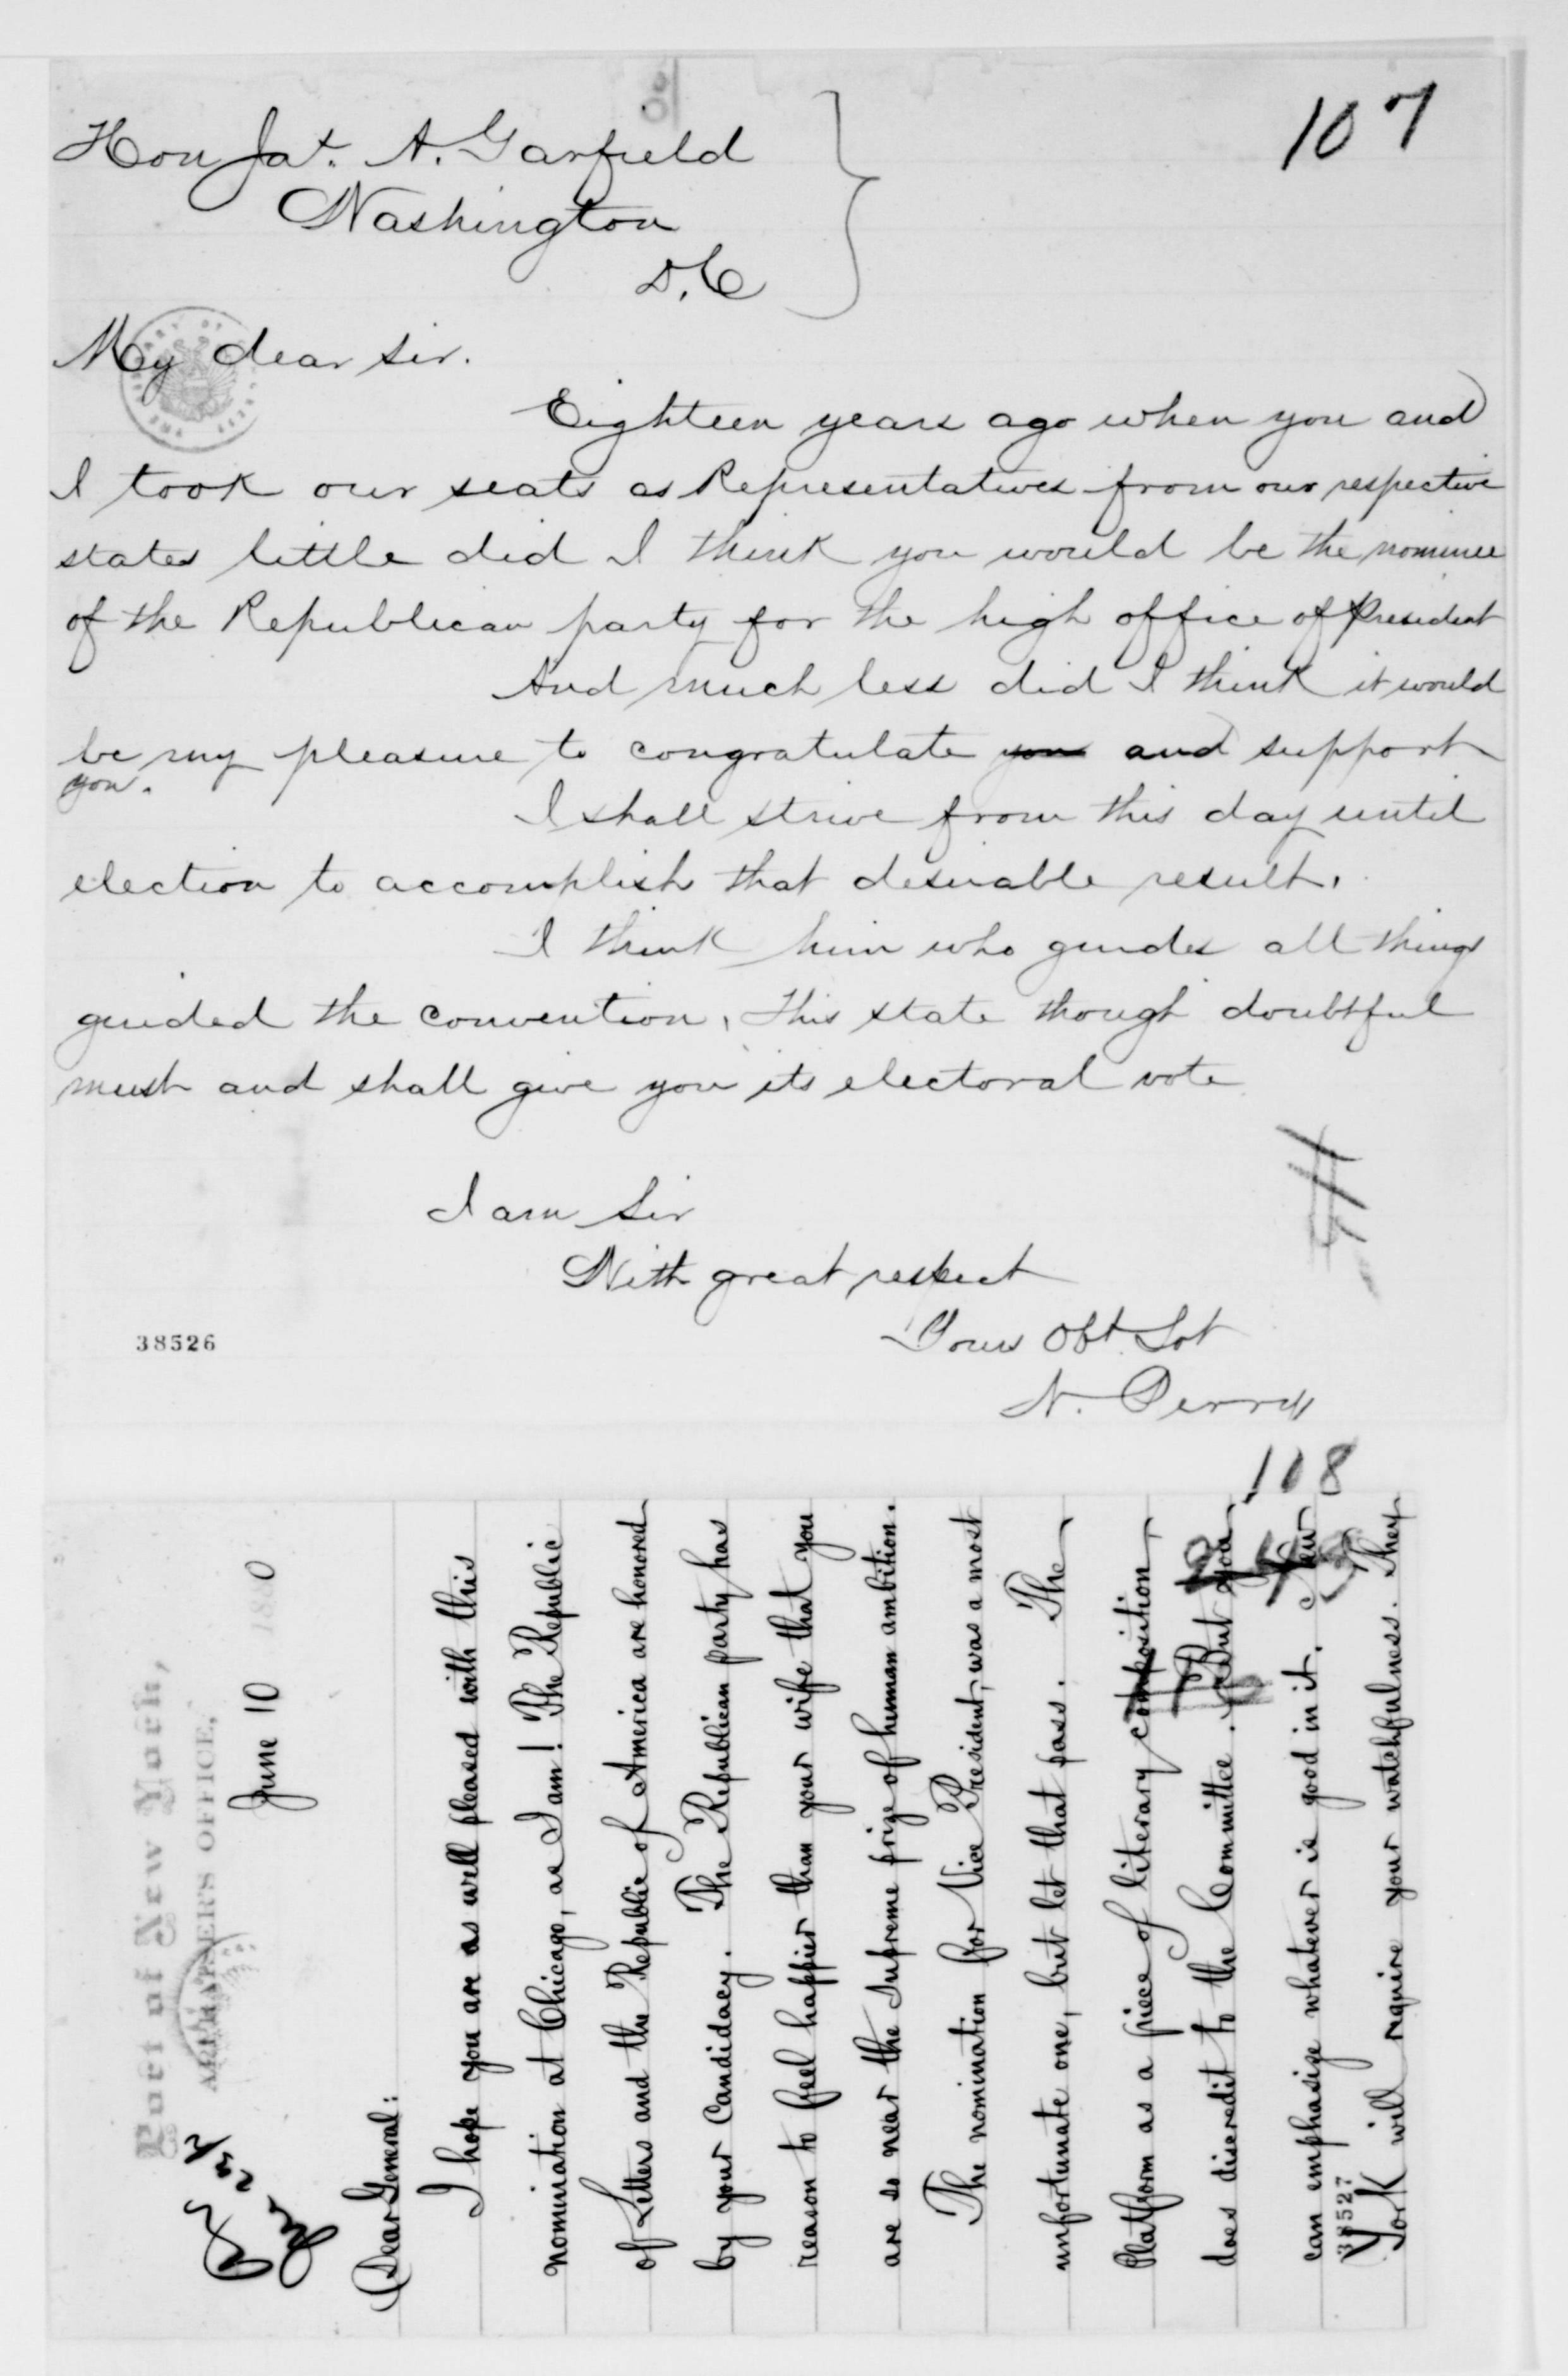 107
Hon Jas. A. Garfield
Washington
D.C
My dear sir.
Eighteen years ago when you and
I took our seats as Representatives from our respective
states little did I think you would be the nominee
of the Republican party for the high office of President
And much less did I think it would
be my pleasure to congratulate you and support
you.
I shall strive from this day until
election to accomplish that desirable result.
I think him who guides all things
guided the convention. This state though doubtful
must and shall give you its electoral vote
I am Sir
With great respect
Yours Obt. Svt
N. Perry
38526
108
Port of New York,
APPRAISER'S OFFICE,
June 10 1880
Dear General:
I hope you are as well pleased with this
nomination at Chicago, as I am! The Republic
of Letters and the Republic of America are honored
by your Candidacy. The Republican party has
reason to feel happier than your wife that you
are so near the supreme prize of human ambition.
The nomination for Vice President, was a most
unfortunate one, but let that pass. The
Platform as a piece of literary composition
does discredit to the Committee. But you
can emphasize whatever is good in it. New
York will require your watchfulness. They
38527